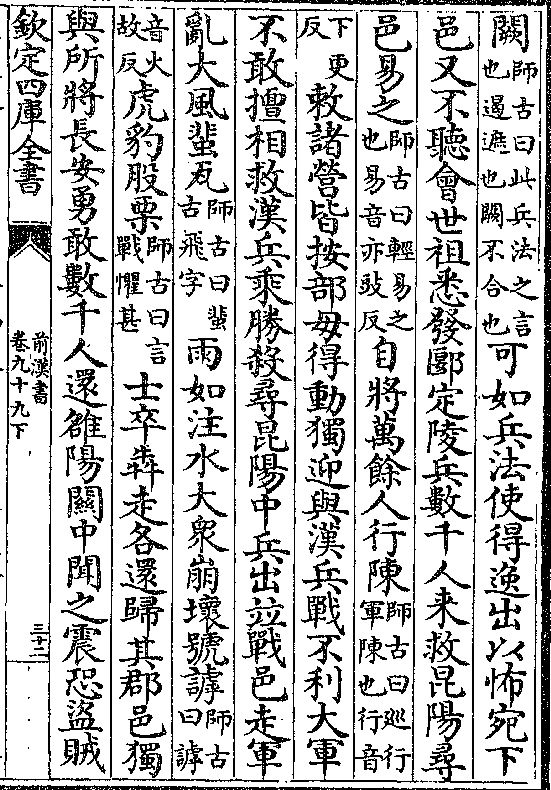 闕師古曰此兵法之言也遏遮也闕不合也可如兵法使得逸出以怖宛下
邑又不聽會世祖悉發郾定陵兵數千人来救昆陽尋
邑易之師古曰輕易之也易音亦豉反自將萬餘人行陳師古曰巡行軍陳也行音
下更反敕諸營皆按部毋得動獨迎與漢兵戰不利大軍
不敢擅相救漢兵乘勝殺尋昆陽中兵出並戰邑走軍
亂大風蜚瓦師古曰蜚古飛字雨如注水大衆崩壞號謼師古曰謼
音火故反虎豹股栗師古曰言戰懼甚士卒犇走各還歸其郡邑獨
與所將長安勇敢數千人還雒陽關中聞之震恐盜賊
欽定四庫全書
前漢書
卷九十九下
三十二